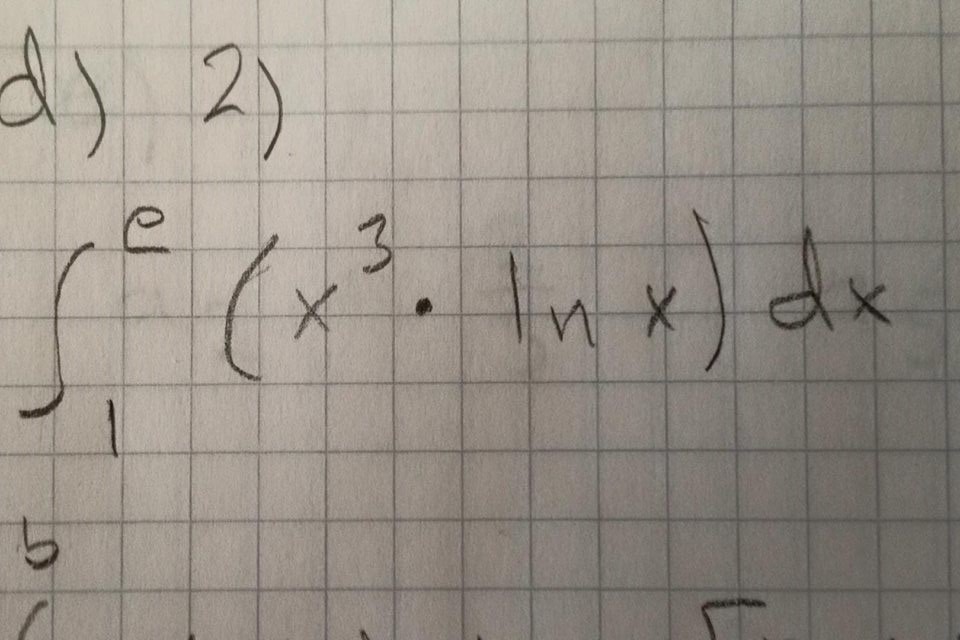 d) 2)
∫₁ᵉ (x³ · ln x) dx
b